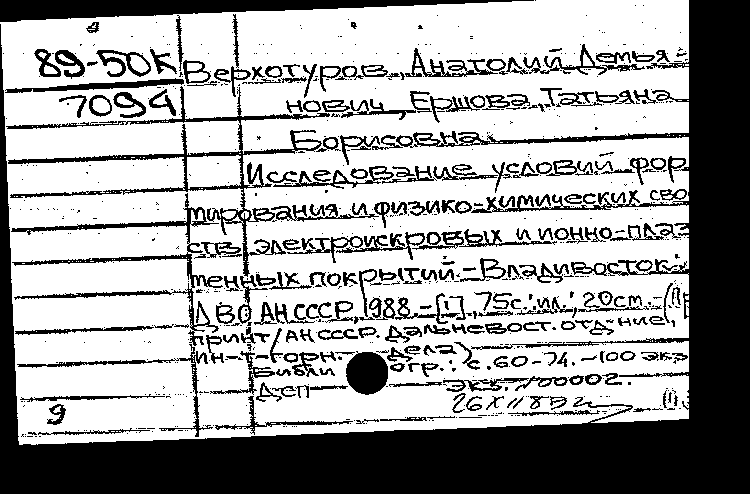 89-50К Верхотуров, Анатолий Демья-
7094 нович, Ершова, Татьяна
Борисовна.
Исследование условий фор
мирования и физико-химических сво
ств электроискровых и ионно-плаз
менных покрытий.-Владивосток:
ДВО АН СССР, 1988.-[1], 75с.:ил.; 20см.-(Пр
принт/АН СССР. Дальневост. отд-ние,
ин-т горн. дела)
Библи огр.: с.60-74.-100 экз
Деп экз.
9